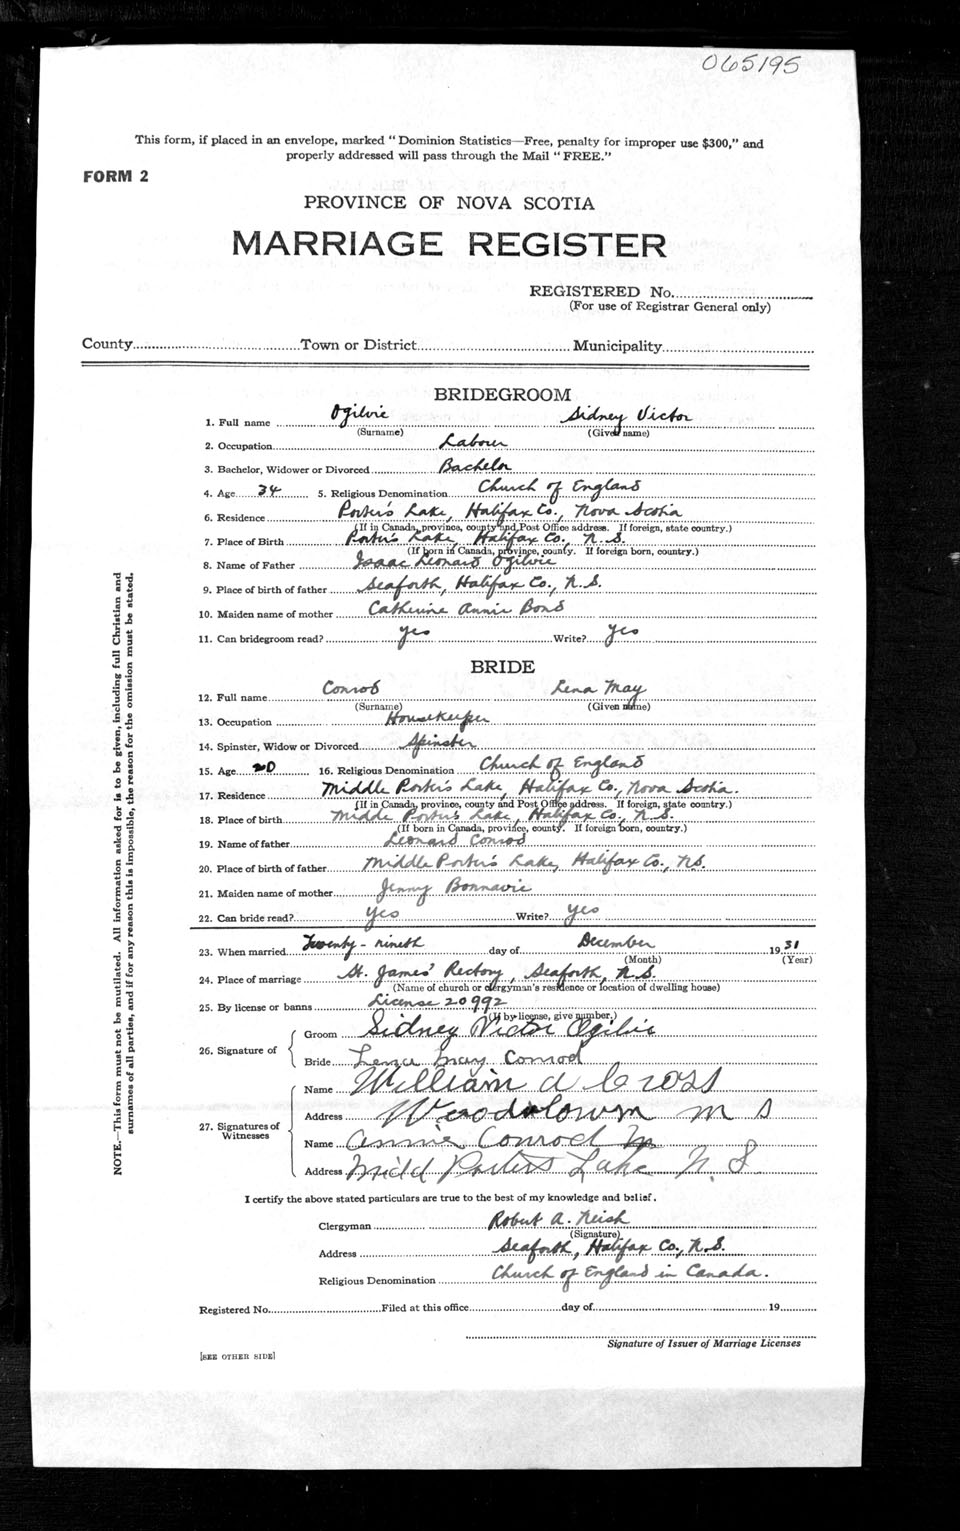 065195
This form, if placed in an envelope, marked "Dominion Statistics—Free, penalty for improper use $300," and
properly addressed will pass through the Mail "FREE."
FORM 2
PROVINCE OF NOVA SCOTIA
MARRIAGE REGISTER
REGISTERED No.
(For use of Registrar General only)
County Town or District Municipality
BRIDEGROOM
1. Full name Ogilvie Sidney Victor
(Surname) (Given name)
2. Occupation Labour
3. Bachelor, Widower or Divorced Bachelor
4. Age 34 5. Religious Denomination Church of England
6. Residence Porter's Lake, Halifax Co., Nova Scotia
(If in Canada, province, county and Post Office address. If foreign, state country.)
7. Place of Birth Porter's Lake, Halifax Co., N.S.
(If born in Canada, province, county. If foreign born, country.)
8. Name of Father Isaac Leonard Ogilvie
9. Place of birth of father Seaforth, Halifax Co., N.S.
10. Maiden name of mother Catherine Annie Bond
11. Can bridegroom read? yes Write? yes
BRIDE
12. Full name Conrod Lena May
(Surname) (Given name)
13. Occupation Housekeeper
14. Spinster, Widow or Divorced Spinster
15. Age 20 16. Religious Denomination Church of England
17. Residence Middle Porter's Lake, Halifax Co., Nova Scotia.
(If in Canada, province, county and Post Office address. If foreign, state country.)
18. Place of birth Midde Porter's Lake, Halifax Co., N.S.
(If born in Canada, province, county. If foreign born, country.)
19. Name of father Leonard Conrod
20. Place of birth of father Middle Porter's Lake, Halifax Co., N.S.
21. Maiden name of mother Jenny Bonnavie
22. Can bride read? yes Write? yes
23. When married Twenty-nineth day of December 1931
(Month) (Year)
24. Place of marriage St. James' Rectory, Seaforth, N.S.
(Name of church or clergyman's residence or location of dwelling house)
25. By license or banns License 20992
(If by license, give number.)
26. Signature of
Groom Sidney Victor Ogilvie
Bride Lena May Conrod
27. Signatures of Witnesses
Name William A Cross
Address Woodslown N S
Name Annie Conrod
Address Midd Porters Lake N.S
I certify the above stated particulars are true to the best of my knowledge and belief.
Clergyman Robert A. Neish
(Signature)
Address Seaforth, Halifax Co., N.S.
Religious Denomination Church of England in Canada.
Registered No. Filed at this office day of 19
Signature of Issuer of Marriage Licenses
[SEE OTHER SIDE]
NOTE.—This form must not be mutilated. All information asked for is to be given, including full Christian and
surnames of all parties, and if for any reason this is impossible, the reason for the omission must be stated.